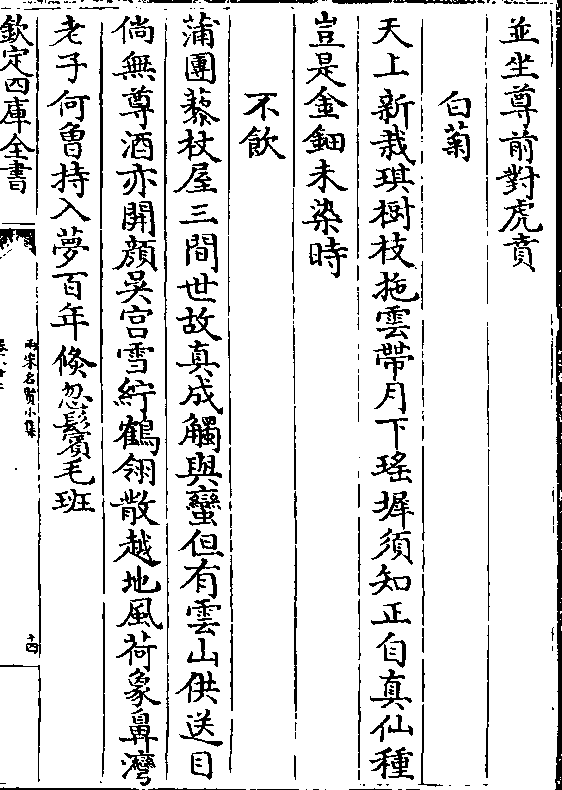 並坐尊前對虎賁
白菊
天上新栽琪樹枝拖雲帶月下瑤墀須知正自真仙種
豈是金鈿未染時
不飲
蒲團藜杖屋三間世故真成觸與蠻但有雲山供送目
倘無尊酒亦開顔吳宫雪紵鶴翎散越地風荷象鼻灣
老子何魯持入夢百年倐忽鬂毛班
欽定四庫全書
兩宋名賢小集
十四